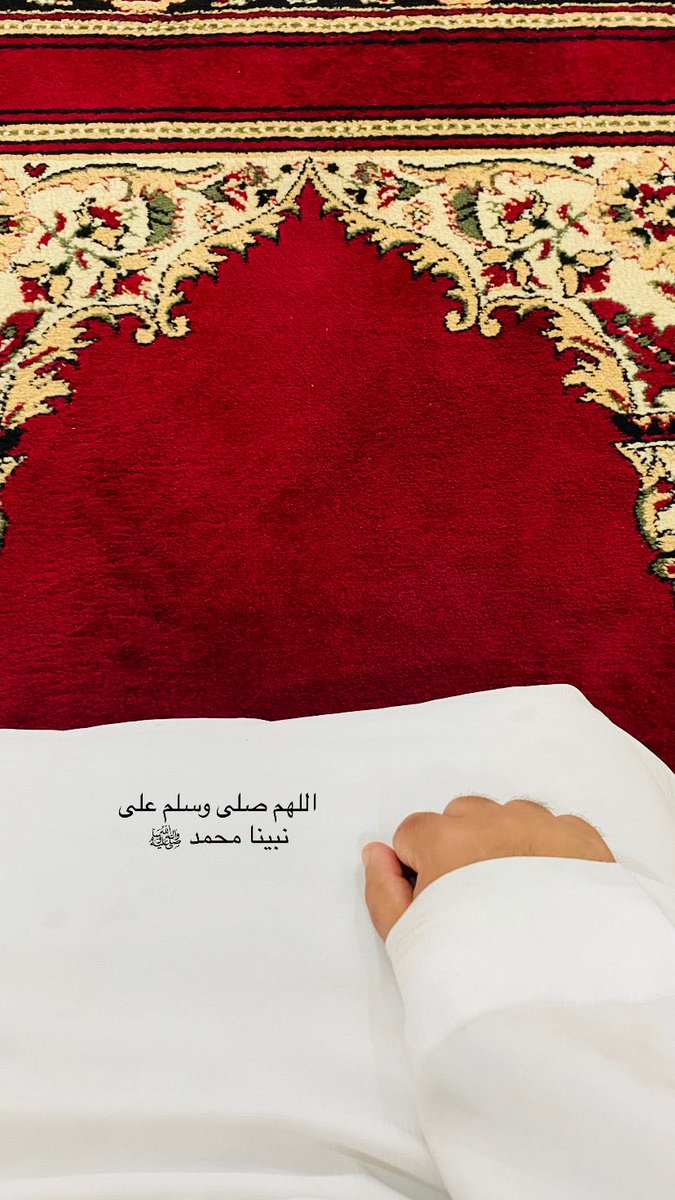 اللهم صلى وسلم على
نبينا محمد ﷺ